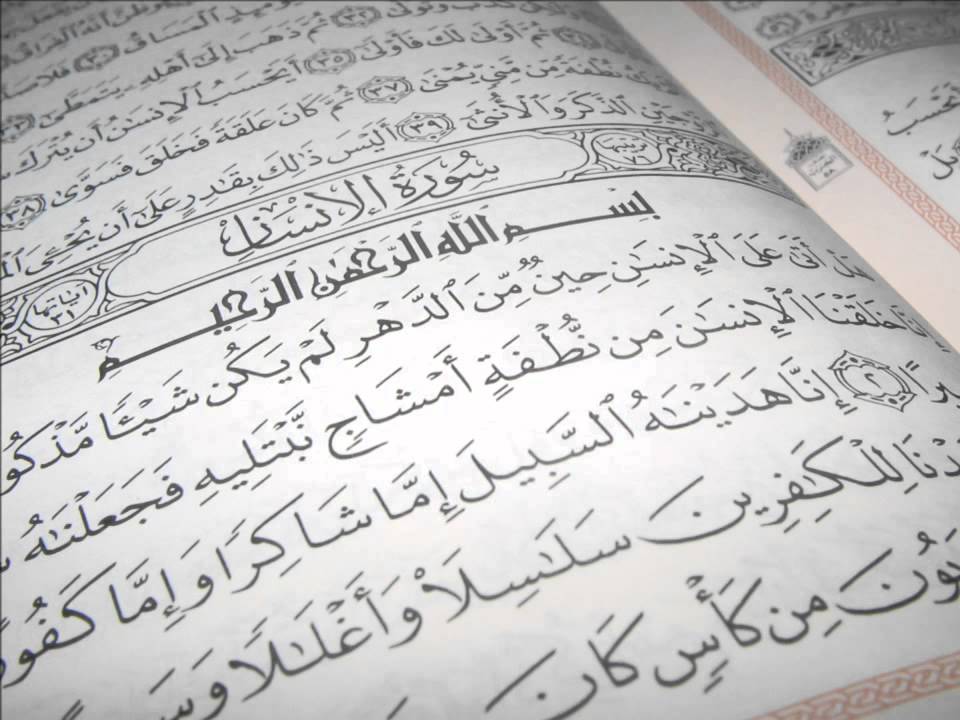 كَذَّبَ وَتَوَلَّىٰ ٣٢ ثُمَّ ذَهَبَ إِلَىٰ أَهْلِهِ يَتَمَطَّىٰ
ثُمَّ أَوْلَىٰ لَكَ فَأَوْلَىٰ ٣٥ أَيَحْسَبُ ٱلْإِنسَـٰنُ أَن يُتْرَكَ
نُطْفَةً مِّن مَّنِىٍّ يُمْنَىٰ ٣٧ ثُمَّ كَانَ عَلَقَةً فَخَلَقَ فَسَوَّىٰ ٣٨
ٱلذَّكَرَ وَٱلْأُنثَىٰ ٣٩ أَلَيْسَ ذَٰلِكَ بِقَـٰدِرٍ عَلَىٰٓ أَن يُحْـِۧىَ
سُورَةُ الإِنْسَان
آياتها ٣١
بِسْمِ ٱللَّهِ ٱلرَّحْمَـٰنِ ٱلرَّحِيمِ
هَلْ أَتَىٰ عَلَى ٱلْإِنسَـٰنِ حِينٌ مِّنَ ٱلدَّهْرِ لَمْ يَكُن شَيْـًٔا مَّذْكُو
خَلَقْنَا ٱلْإِنسَـٰنَ مِن نُّطْفَةٍ أَمْشَاجٍ نَّبْتَلِيهِ فَجَعَلْنَـٰهُ
يرًا ٢ إِنَّا هَدَيْنَـٰهُ ٱلسَّبِيلَ إِمَّا شَاكِرًا وَإِمَّا كَفُو
دْنَا لِلْكَـٰفِرِينَ سَلَـٰسِلَا۟ وَأَغْلَـٰلًا وَسَ
بُونَ مِن كَأْسٍ كَانَ